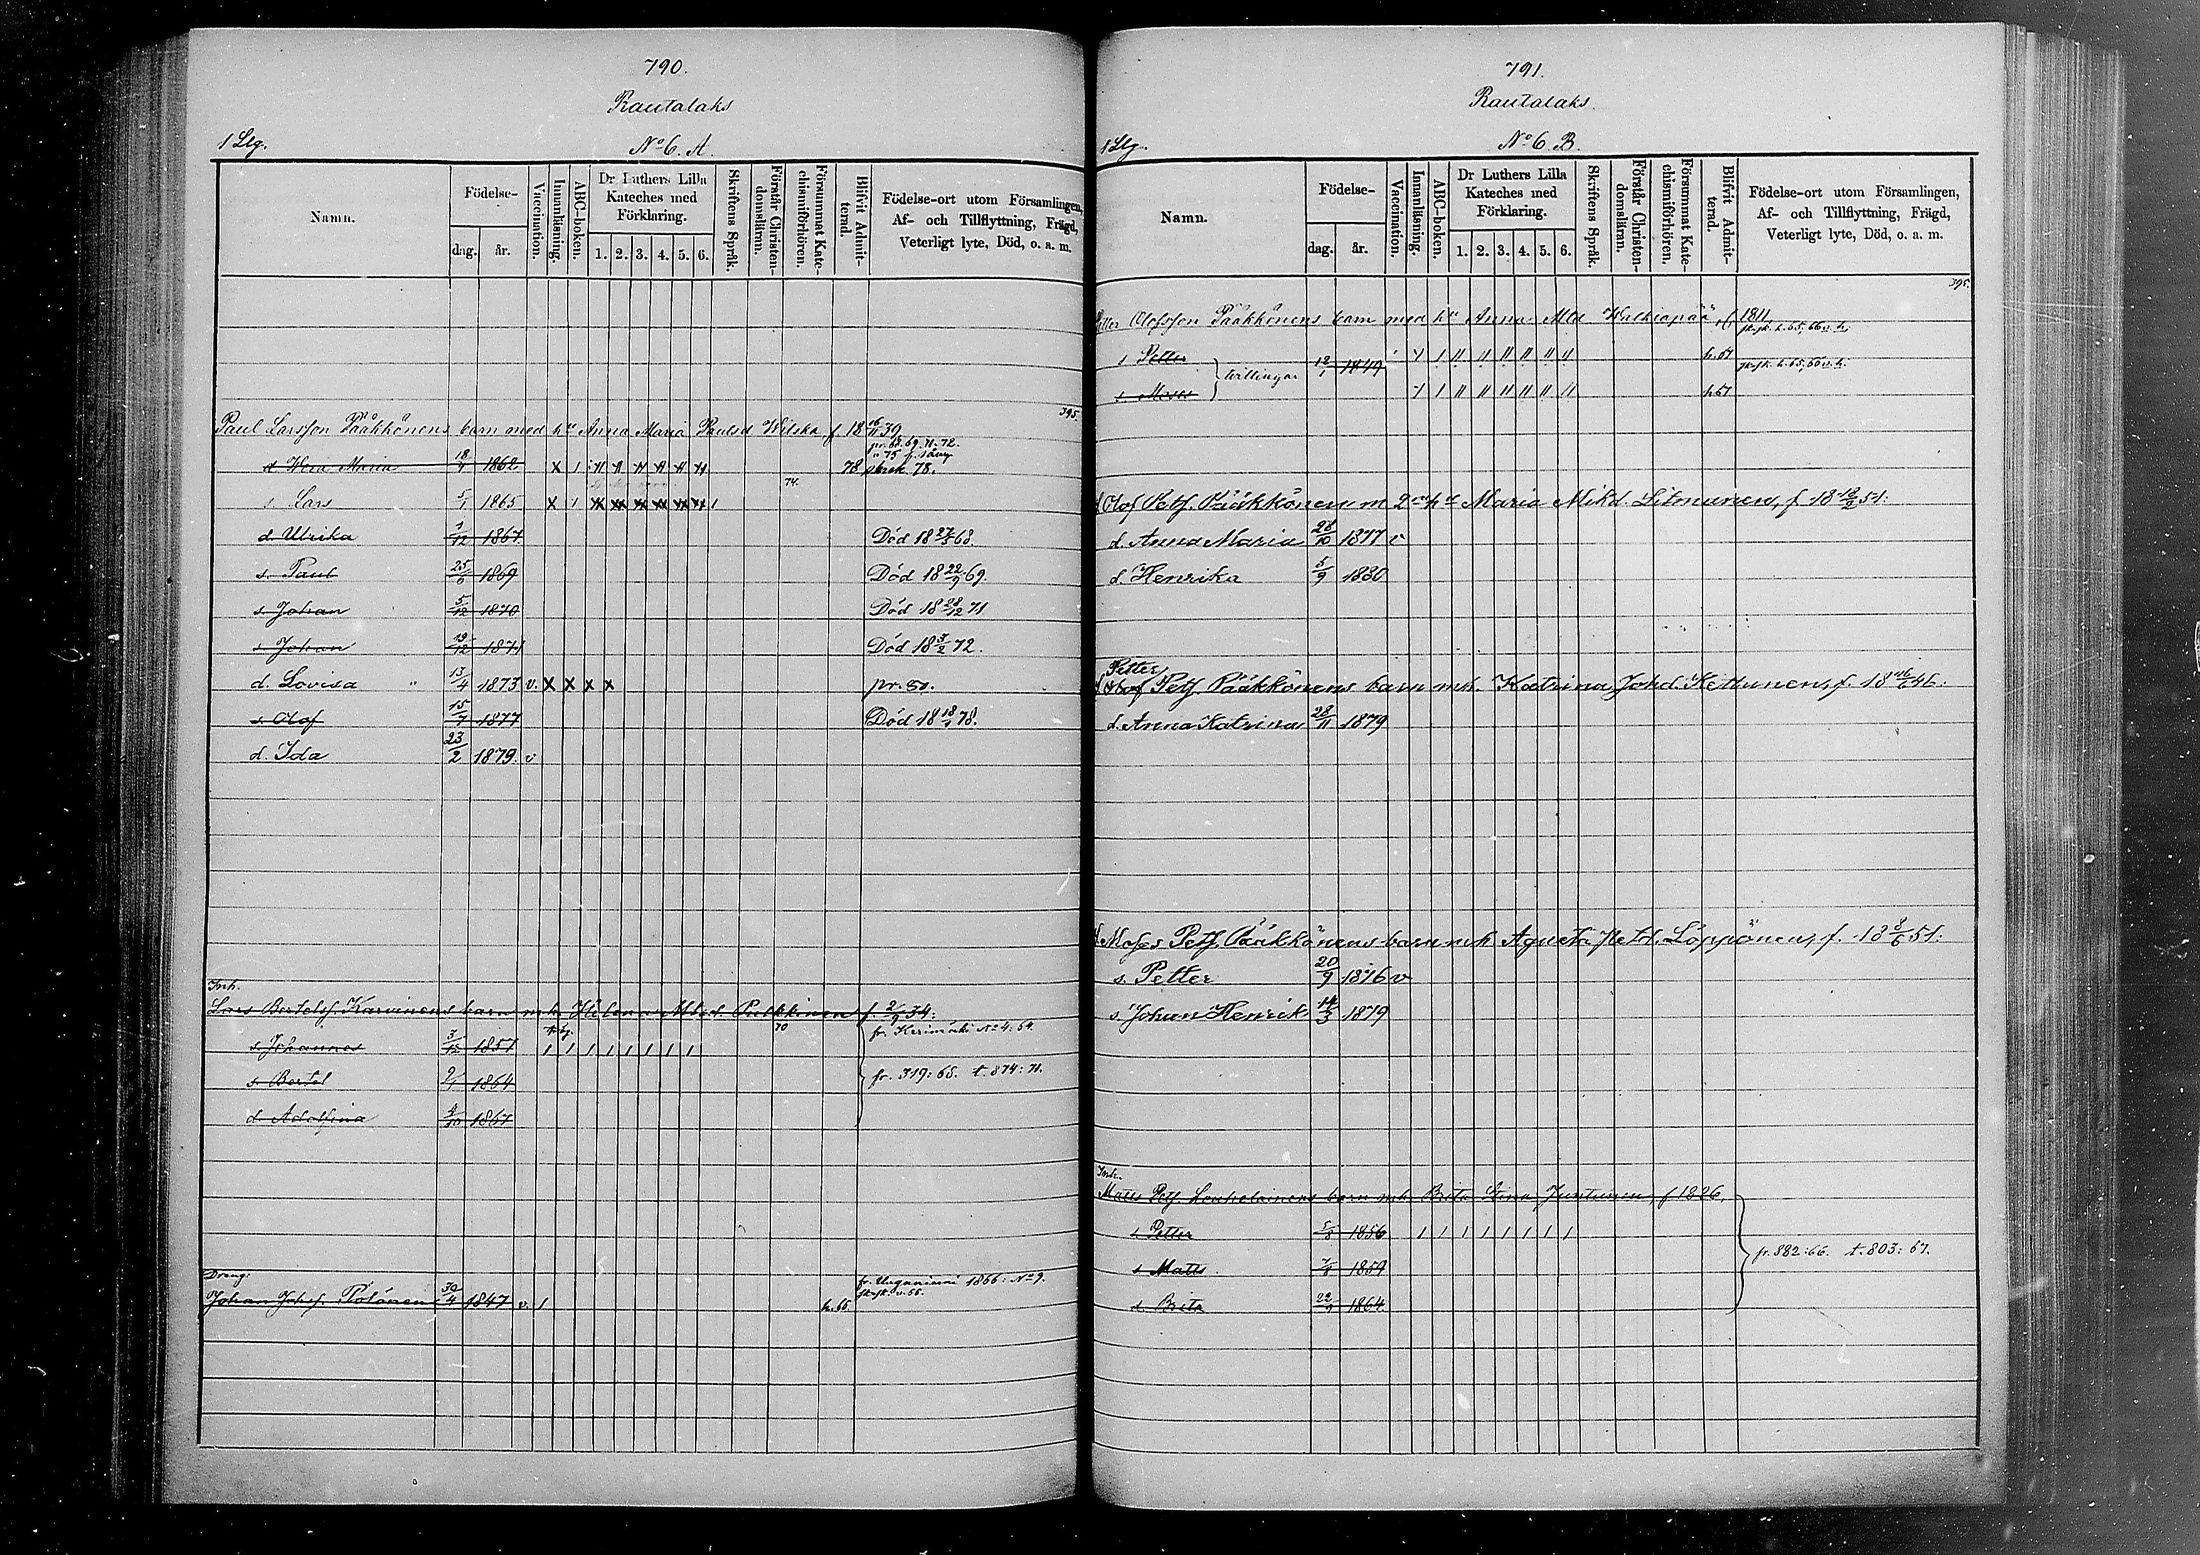 790.
Rautalaks
1 Llg.
No 6. A.
Namn.
Födelse-
dag.
år.
Vaccination.
Innanläsning.
ABC-boken.
Dr Luthers Lilla Kateches med Förklaring.
1. 2. 3. 4. 5. 6.
Skriftens Språk.
Förstår Christendomsläran.
Försummat Katechismiförhören.
Blifvit Admitterad.
Födelse-ort utom Församlingen,
Af- och Tillflyttning, Frägd,
Veterligt lyte, Död, o. a. m.
395.
Paul Larsson Pääkkönens barn med hu Anna Maria Paulsd Wilska f. 18 16/11 39
pr. 68. 69. 71. 72.
d Wera Maria 18/4 1862 x 1 78 76.
74.
s. Lars 5/1 1865 x 1
d Ulrika 1/12 1867 Död 18 27/5 68.
s. Paul 25/6 1869 Död 18 22/9 69.
s. Johan 5/12 1870 Död 18 28/12 71
s. Johan 19/12 1871 Död 18 3/2 72.
d. Lovisa " 13/4 1873 v. x x x x pr. 80.
s. Olof 15/7 1877 Död 18 18/1 78.
d. Ida 23/2 1879. v
Inh.
Lars Bertelsf. Karvinens barn mh. Helena Mtsd Pulkkinen f. 2/9 34:
70 fr. Kerimäki No 4: 64.
s. Johannes 3/12 1857 1 1 1 1 1 1 1 1
s. Bertel 9/1 1864 fr. 319: 68. t. 874: 71.
d. Adolfina 4/10 1867
Dreng:
fr. Uuganiemi 1866: No 9.
Johan Johsf. Pölönen 30/4 1847 v. 1 h. 66.
791.
Rautalaks.
1 Llg.
No 6. B.
Namn.
Födelse-
dag.
år.
Vaccination.
Innanläsning.
ABC-boken.
Dr Luthers Lilla Kateches med Förklaring.
1. 2. 3. 4. 5. 6.
Skriftens Språk.
Förstår Christendomsläran.
Försummat Katechismiförhören.
Blifvit Admitterad.
Födelse-ort utom Församlingen,
Af- och Tillflyttning, Frägd,
Veterligt lyte, Död, o. a. m.
395.
Petter Olofsson Pääkkönens barn med hu Anna Mtd Walkiapää, f. 1811
s Petter 12/1 1849 h. 67
tvillingar
s. Moses h. 67
Olof Petf. Pääkkönen m 2 hu Maria Mikd. Litmanen, f 18 12/2 51:
d. Anna Maria 28/10 1877 v
d. Henrika 5/9 1880
Petter
Olof Petf. Pääkkönens barn mh. Katrina Johd. Kettunen, f. 18 16/6 46:
d. Anna Katrina 28/11 1879
Moses Petf. Pääkkönens barn mh Agneta Petd. Löppönen, f. 18 8/6 51:
s. Petter 20/9 1876 v
s. Johan Henrik 14/3 1879
Inh.
Matts Petf. Loukolainens barn mh Brita Stina Juntunen, f 1826.
s. Petter 5/8 1856 1 1 1 1 1 1 1 1
fr. 882: 66. t. 803: 67.
s Matts 7/8 1859
d Brita 22/9 1864